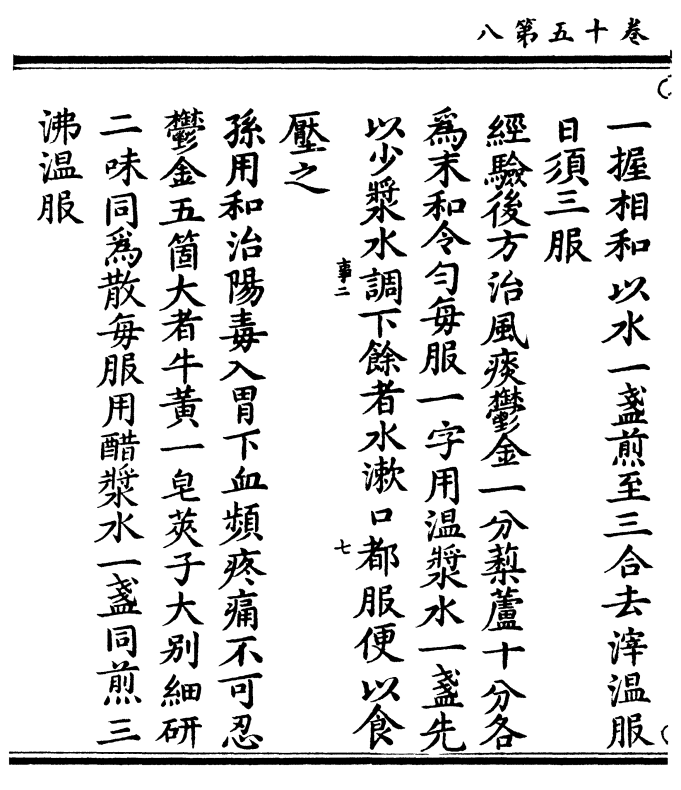 卷十五第八
一握相和以水一盞煎至三合去滓温服
日須三服
經驗後方治風痰鬱金一分藜蘆十分各
爲末和令勻每服一字用温漿水一盞先
以少漿水調下餘者水漱口都服便以食
事二
七
壓之
孫用和治陽毒入胃下血頻疼痛不可忍
鬱金五箇大者牛黃一皂莢子大别細研
二味同爲散每服用醋漿水一盞同煎三
沸温服